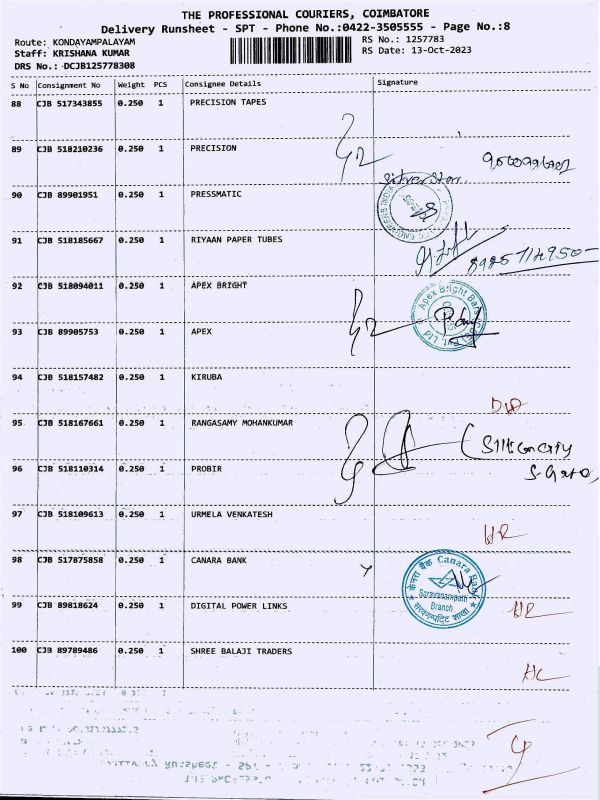 THE PROFESSIONAL COURIERS, COIMBATORE
Delivery Runsheet - SPT - Phone No.:0422-3505555 - Page No.:8
Route: KONDAYAMPALAYAM
RS No.: 1257783
Staff: KRISHANA KUMAR
RS Date: 13-Oct-2023
DRS No.: DCJB125778308
S No Consignment No Weight PCS Consignee Details Signature
88 CJB 517343855 0.250 1 PRECISION TAPES
89 CJB 518210236 0.250 1 PRECISION
90 CJB 89901951 0.250 1 PRESSMATIC
91 CJB 518185667 0.250 1 RIYAAN PAPER TUBES
8925714950
92 CJB 518094011 0.250 1 APEX BRIGHT
Apex Bright Pvt. Ltd
93 CJB 89905753 0.250 1 APEX
94 CJB 518157482 0.250 1 KIRUBA
95 CJB 518167661 0.250 1 RANGASAMY MOHANKUMAR
96 CJB 518110314 0.250 1 PROBIR
97 CJB 518109613 0.250 1 URMELA VENKATESH
98 CJB 517875858 0.250 1 CANARA BANK
केनरा बैंक Canara Bank
Saravanampatti
Branch
99 CJB 89818624 0.250 1 DIGITAL POWER LINKS
100 CJB 89789486 0.250 1 SHREE BALAJI TRADERS